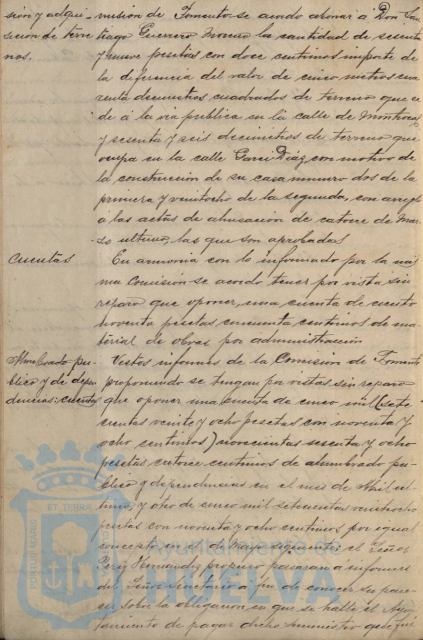 sion y adqui- misión de Fomento se acordó abonar á Don San-
sicion de terre- tiago Guerrero Moreno la cantidad de sesenta
nos. y nueve pesetas con doce centimos importe de
la diferencia del valor de cinco metros cua
renta decimetros cuadrados de terreno que ce
de á la via publica en la calle de Montrocal
y sesenta y seis decimetros de terreno que
ocupa en la calle Garci-Diaz, con motivo de
la construcción de su casa numero dos de la
primera y veintiocho de la segunda, con arreglo
á las actas de alineación de catorce de Mar-
zo ultimo, las que son aprobadas
Cuentas En armonia con lo informado por la mis
ma Comisión se acordó tener por vista sin
reparo que oponer, una cuenta de ciento
noventa pesetas cincuenta centimos de ma
terial de obras por administración
Alumbrado pu- Vistos informes de la Comisión de Fomento
blico y de depen- proponiendo se tengan por vistas sin reparo
dencias: cuentas que oponer una cuenta de cinco mil (sete
cientas veinte y ocho pesetas con noventa y
ocho centimos) novecientas sesenta y ocho
pesetas catorce centimos de alumbrado pu-
blico y dependencias en el mes de Abril ul
timo, y otra de cinco mil setecientas veintiocho
pesetas con noventa y ocho centimos por igual
concepto en el de Mayo siguiente; el Señor
Perez Fernandez propuso pasaran á informe
del Señor Secretario á fin de conocer su pare-
cer sobre la obligacion en que se halla el Ayun
tamiento de pagar dicho suministro que
PORTUS MARIS
ET TERRAE
Ayuntamiento de
HUELVA